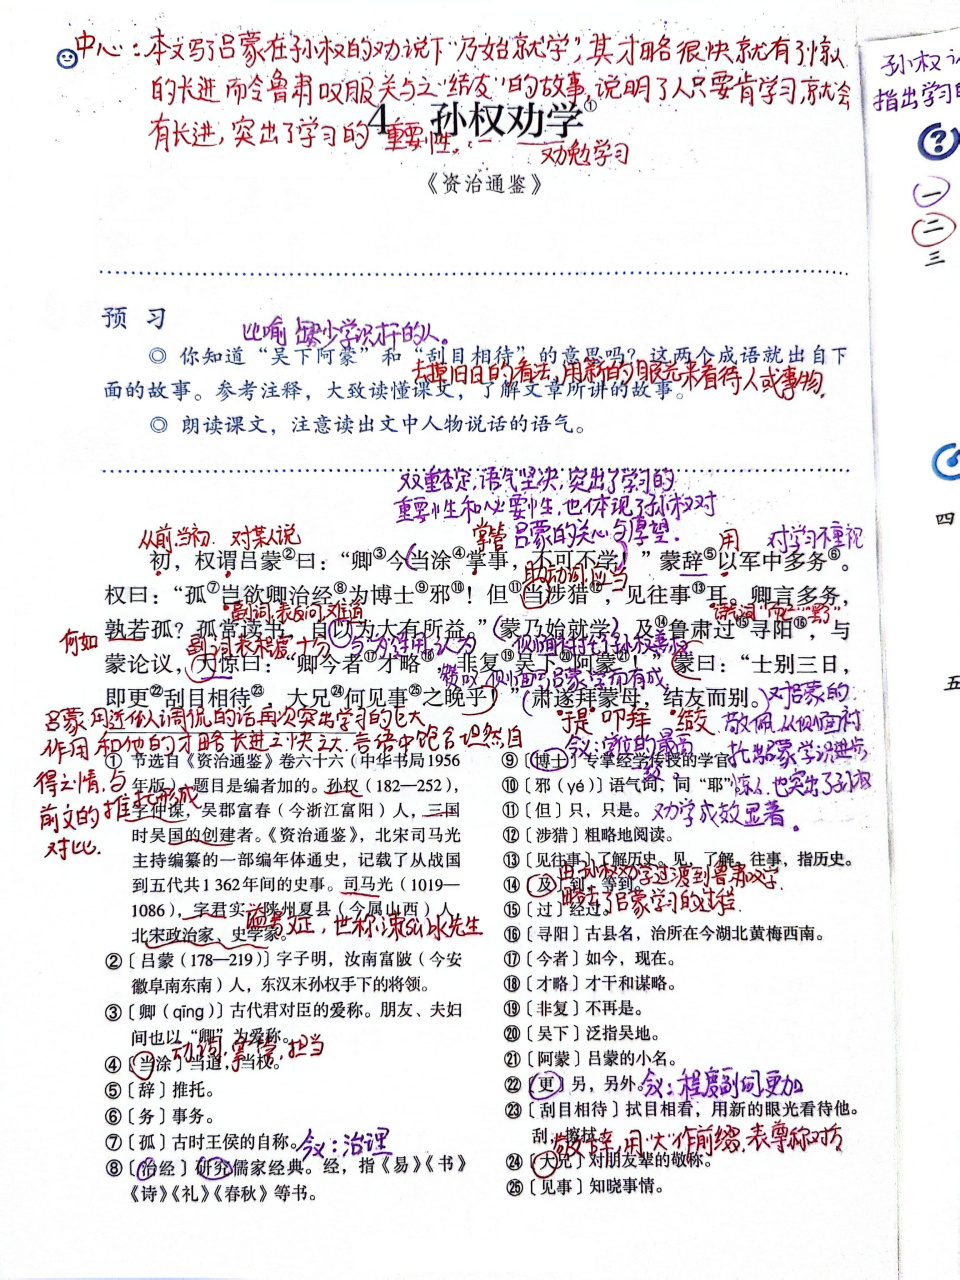 中心：本文写了吕蒙在孙权的劝说下“乃始就学”，其才略很快就有了惊人
的长进而令鲁肃叹服并与之“结友”的故事，说明了人只要肯学习，就会
有长进，突出了学习的重要性。
4 孙权劝学①
劝勉学习
《资治通鉴》
预习
比喻缺少学识才干的人。
◎ 你知道“吴下阿蒙”和“刮目相待”的意思吗？这两个成语就出自下
去掉旧日的看法，用新的眼光来看待人或事物。
面的故事。参考注释，大致读懂课文，了解文章所讲的故事。
◎ 朗读课文，注意读出文中人物说话的语气。
双重否定，语气坚决，突出了学习的
重要性和必要性，也体现了孙权对
吕蒙的关心与厚望。
从前，当初 对某人说 掌管 用 对学习不重视
初，权谓吕蒙②曰：“卿③今当涂④掌事，不可不学！”蒙辞⑤以军中多务⑥。
助动词，应当
权曰：“孤⑦岂欲卿治经⑧为博士⑨邪⑩！但⑪当涉猎⑫，见往事⑬耳。卿言多务，
副词，表反问，难道
孰若孤？孤常读书，自以为大有所益。”蒙乃始就学。及⑭鲁肃过⑮寻阳⑯，与
何如 副词，表程度，十分
蒙论议，大惊曰：“卿今者⑰才略⑱，非复⑲吴下⑳阿蒙㉑！”蒙曰：“士别三日，
即更㉒刮目相待㉓，大兄㉔何见事㉕之晚乎！”肃遂拜蒙母，结友而别。
于是 叩拜 结交
对吕蒙的
敬佩，从侧面衬
托出吕蒙学识进步
惊人，也突出了孙权
劝学成效显著。
吕蒙用近似调侃的话再次突出学习的巨大
作用和他的才略长进之快之大，言语中饱含坦然自
得之情，与
前文的推托形成
对比。
① 节选自《资治通鉴》卷六十六（中华书局1956
年版）。题目是编者加的。孙权（182—252），
字仲谋，吴郡富春（今浙江富阳）人，三国
时吴国的创建者。《资治通鉴》，北宋司马光
主持编纂的一部编年体通史，记载了从战国
到五代共1 362年间的史事。司马光（1019—
1086），字君实，陕州夏县（今属山西）人，
北宋政治家、史学家。
谥号文正，世称涑水先生
②〔吕蒙（178—219）〕字子明，汝南富陂（今安
徽阜南东南）人，东汉末孙权手下的将领。
③〔卿（qīng）〕古代君对臣的爱称。朋友、夫妇
间也以“卿”为爱称。
动词，掌管，担当
④〔当涂〕当道，当权。
⑤〔辞〕推托。
⑥〔务〕事务。
⑦〔孤〕古时王侯的自称。
今义：治理
⑧〔治经〕研究儒家经典。经，指《易》《书》
《诗》《礼》《春秋》等书。
今义：学位的最高一级。
⑨〔博士〕专掌经学传授的学官。
⑩〔邪（yé）〕语气词，同“耶”。
⑪〔但〕只，只是。
⑫〔涉猎〕粗略地阅读。
⑬〔见往事〕了解历史。见，了解。往事，指历史。
由孙权劝学过渡到鲁肃叹学，
⑭〔及〕到，等到。
略去了吕蒙学习的过程。
⑮〔过〕经过。
⑯〔寻阳〕古县名，治所在今湖北黄梅西南。
⑰〔今者〕如今，现在。
⑱〔才略〕才干和谋略。
⑲〔非复〕不再是。
⑳〔吴下〕泛指吴地。
㉑〔阿蒙〕吕蒙的小名。
㉒〔更〕另，另外。
今义：程度副词，更加
㉓〔刮目相待〕拭目相看，用新的眼光看待他。
刮，擦拭。
敬辞，用“大”作前缀，表尊称对方
㉔〔大兄〕对朋友辈的敬称。
㉕〔见事〕知晓事情。
孙权
指出学习
一
二
三
四
五